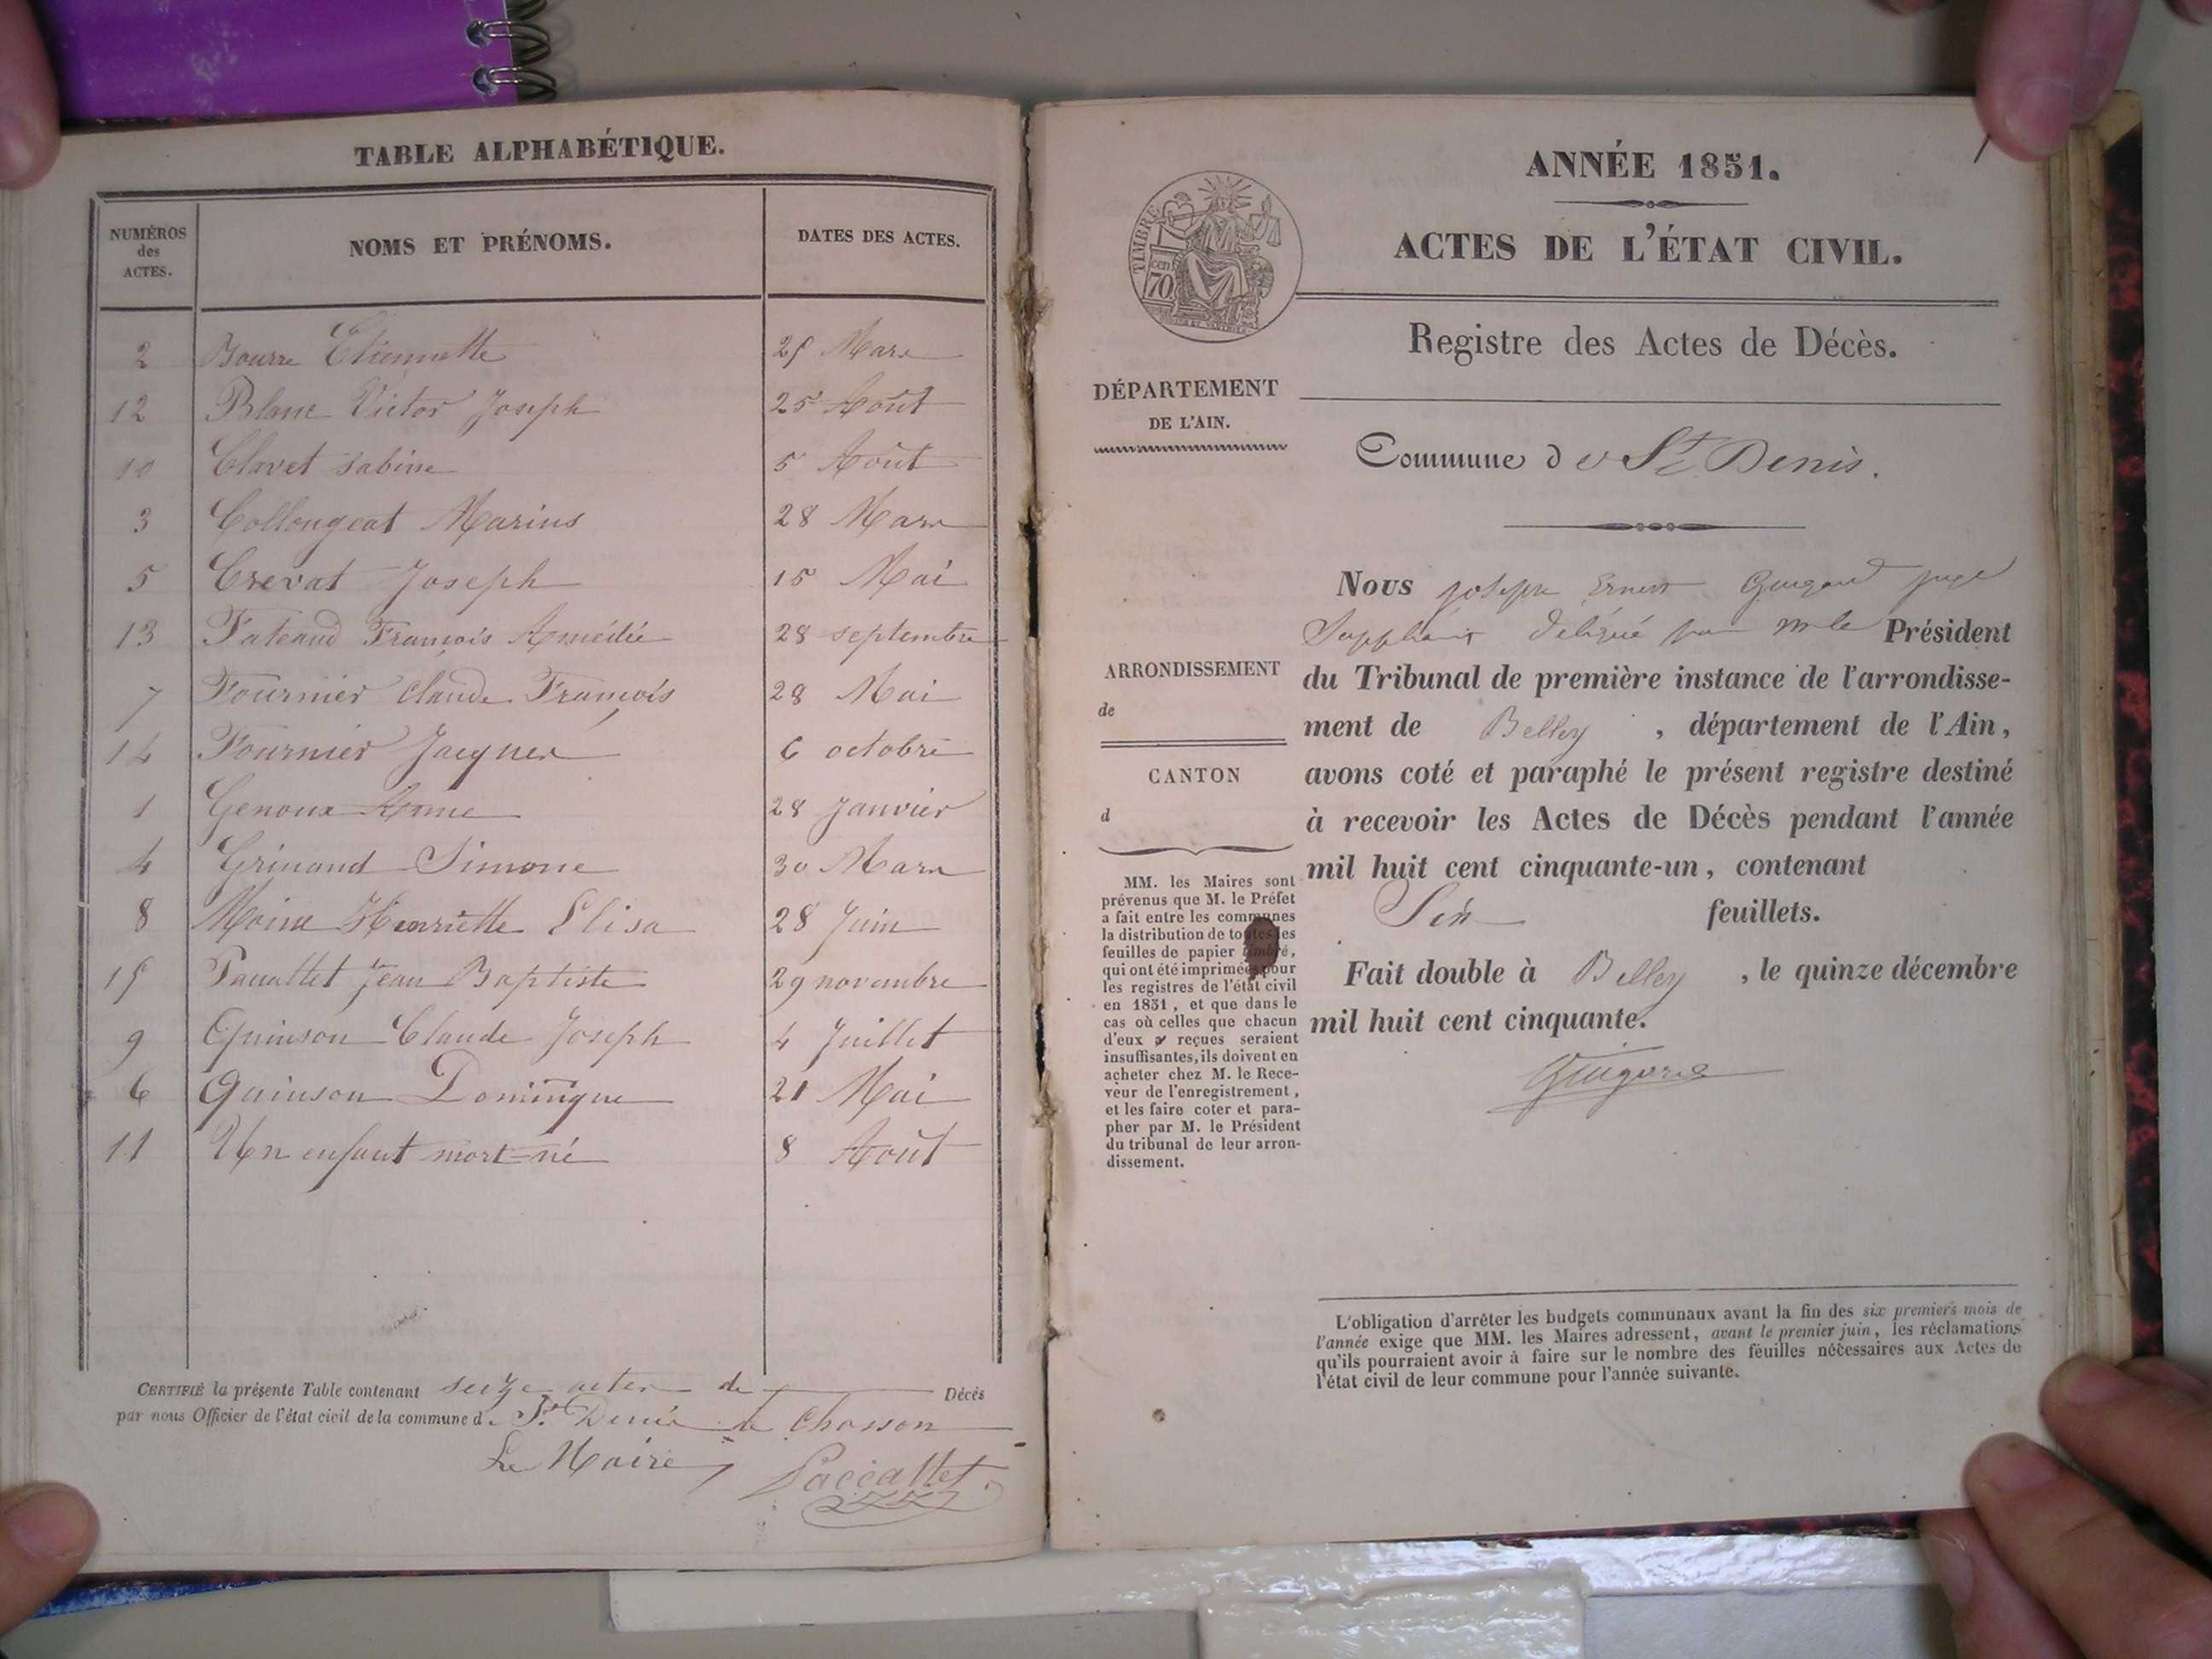 TABLE ALPHABÉTIQUE.
NUMÉROS des ACTES. NOMS ET PRÉNOMS. DATES DES ACTES.
2 Bourre Etiennette 25 Mars
12 Blanc Victor Joseph 25 Août
10 Clavet Sabine 5 Août
3 Collongeat Marius 28 Mars
5 Crevat Joseph 15 Mai
13 François Amédée 28 septembre
7 Fournier Claude François 28 Mai
14 Fournier Jacques 6 octobre
1 Genoux Anne 28 Janvier
4 Grinand Simone 30 Mars
8 Moine Henriette Elisa 28 Juin
15 Jean Baptiste 29 novembre
9 Quinson Claude Joseph 4 Juillet
6 Quinson Dominique 21 Mai
11 Un enfant mort-né 8 Août
CERTIFIÉ la présente Table contenant seize actes de Décès
par nous Officier de l'état civil de la commune d. St Denis le Chosson
Le Maire,
Paccallet
ANNÉE 1851.
ACTES DE L'ÉTAT CIVIL.
TIMBRE
70 cen
Registre des Actes de Décès.
DÉPARTEMENT
DE L'AIN.
Commune de St Denis.
ARRONDISSEMENT
de
CANTON
d
MM. les Maires sont
prévenus que M. le Préfet
a fait entre les communes
la distribution de toutes les
feuilles de papier timbré,
qui ont été imprimées pour
les registres de l'état civil
en 1851, et que dans le
cas où celles que chacun
d'eux a reçues seraient
insuffisantes, ils doivent en
acheter chez M. le Rece-
veur de l'enregistrement,
et les faire coter et para-
pher par M. le Président
du tribunal de leur arron-
dissement.
Nous Joseph Ernest juge
Suppléant délégué par Mr le Président
du Tribunal de première instance de l'arrondisse-
ment de Belley, département de l'Ain,
avons coté et paraphé le présent registre destiné
à recevoir les Actes de Décès pendant l'année
mil huit cent cinquante-un, contenant
Six feuillets.
Fait double à Belley, le quinze décembre
mil huit cent cinquante.
L'obligation d'arrêter les budgets communaux avant la fin des six premiers mois de
l'année exige que MM. les Maires adressent, avant le premier juin, les réclamations
qu'ils pourraient avoir à faire sur le nombre des feuilles nécessaires aux Actes de
l'état civil de leur commune pour l'année suivante.